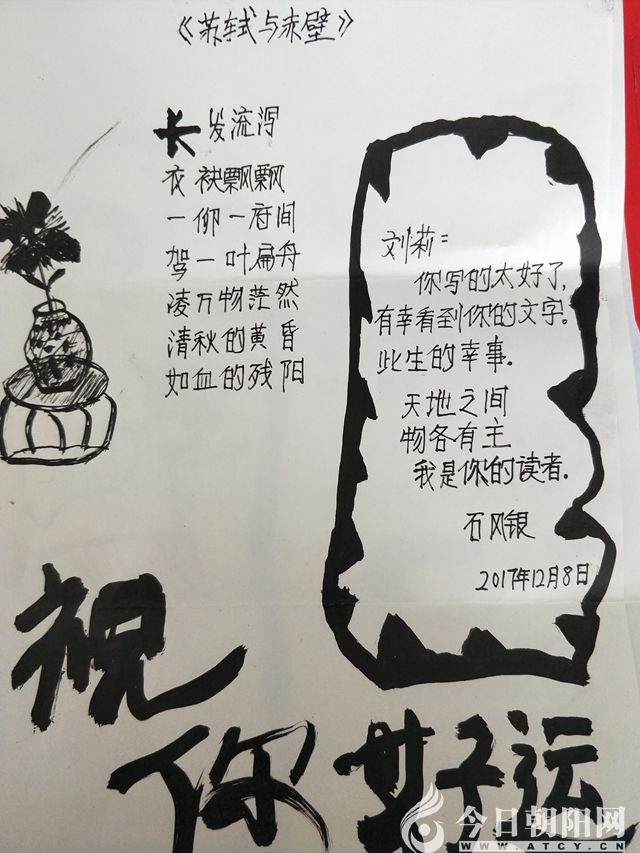 《苏轼与赤壁》
长发流泻
衣袂飘飘
一仰一府间
驾一叶扁舟
凌万物茫然
清秋的黄昏
如血的残阳
刘莉：
你写的太好了，
有幸看到你的文字。
此生的幸事。
天地之间
物各有主
我是你的读者.
石风银
2017年12月8日
祝
你好运
今日朝阳网
WWW.ATCY.CN